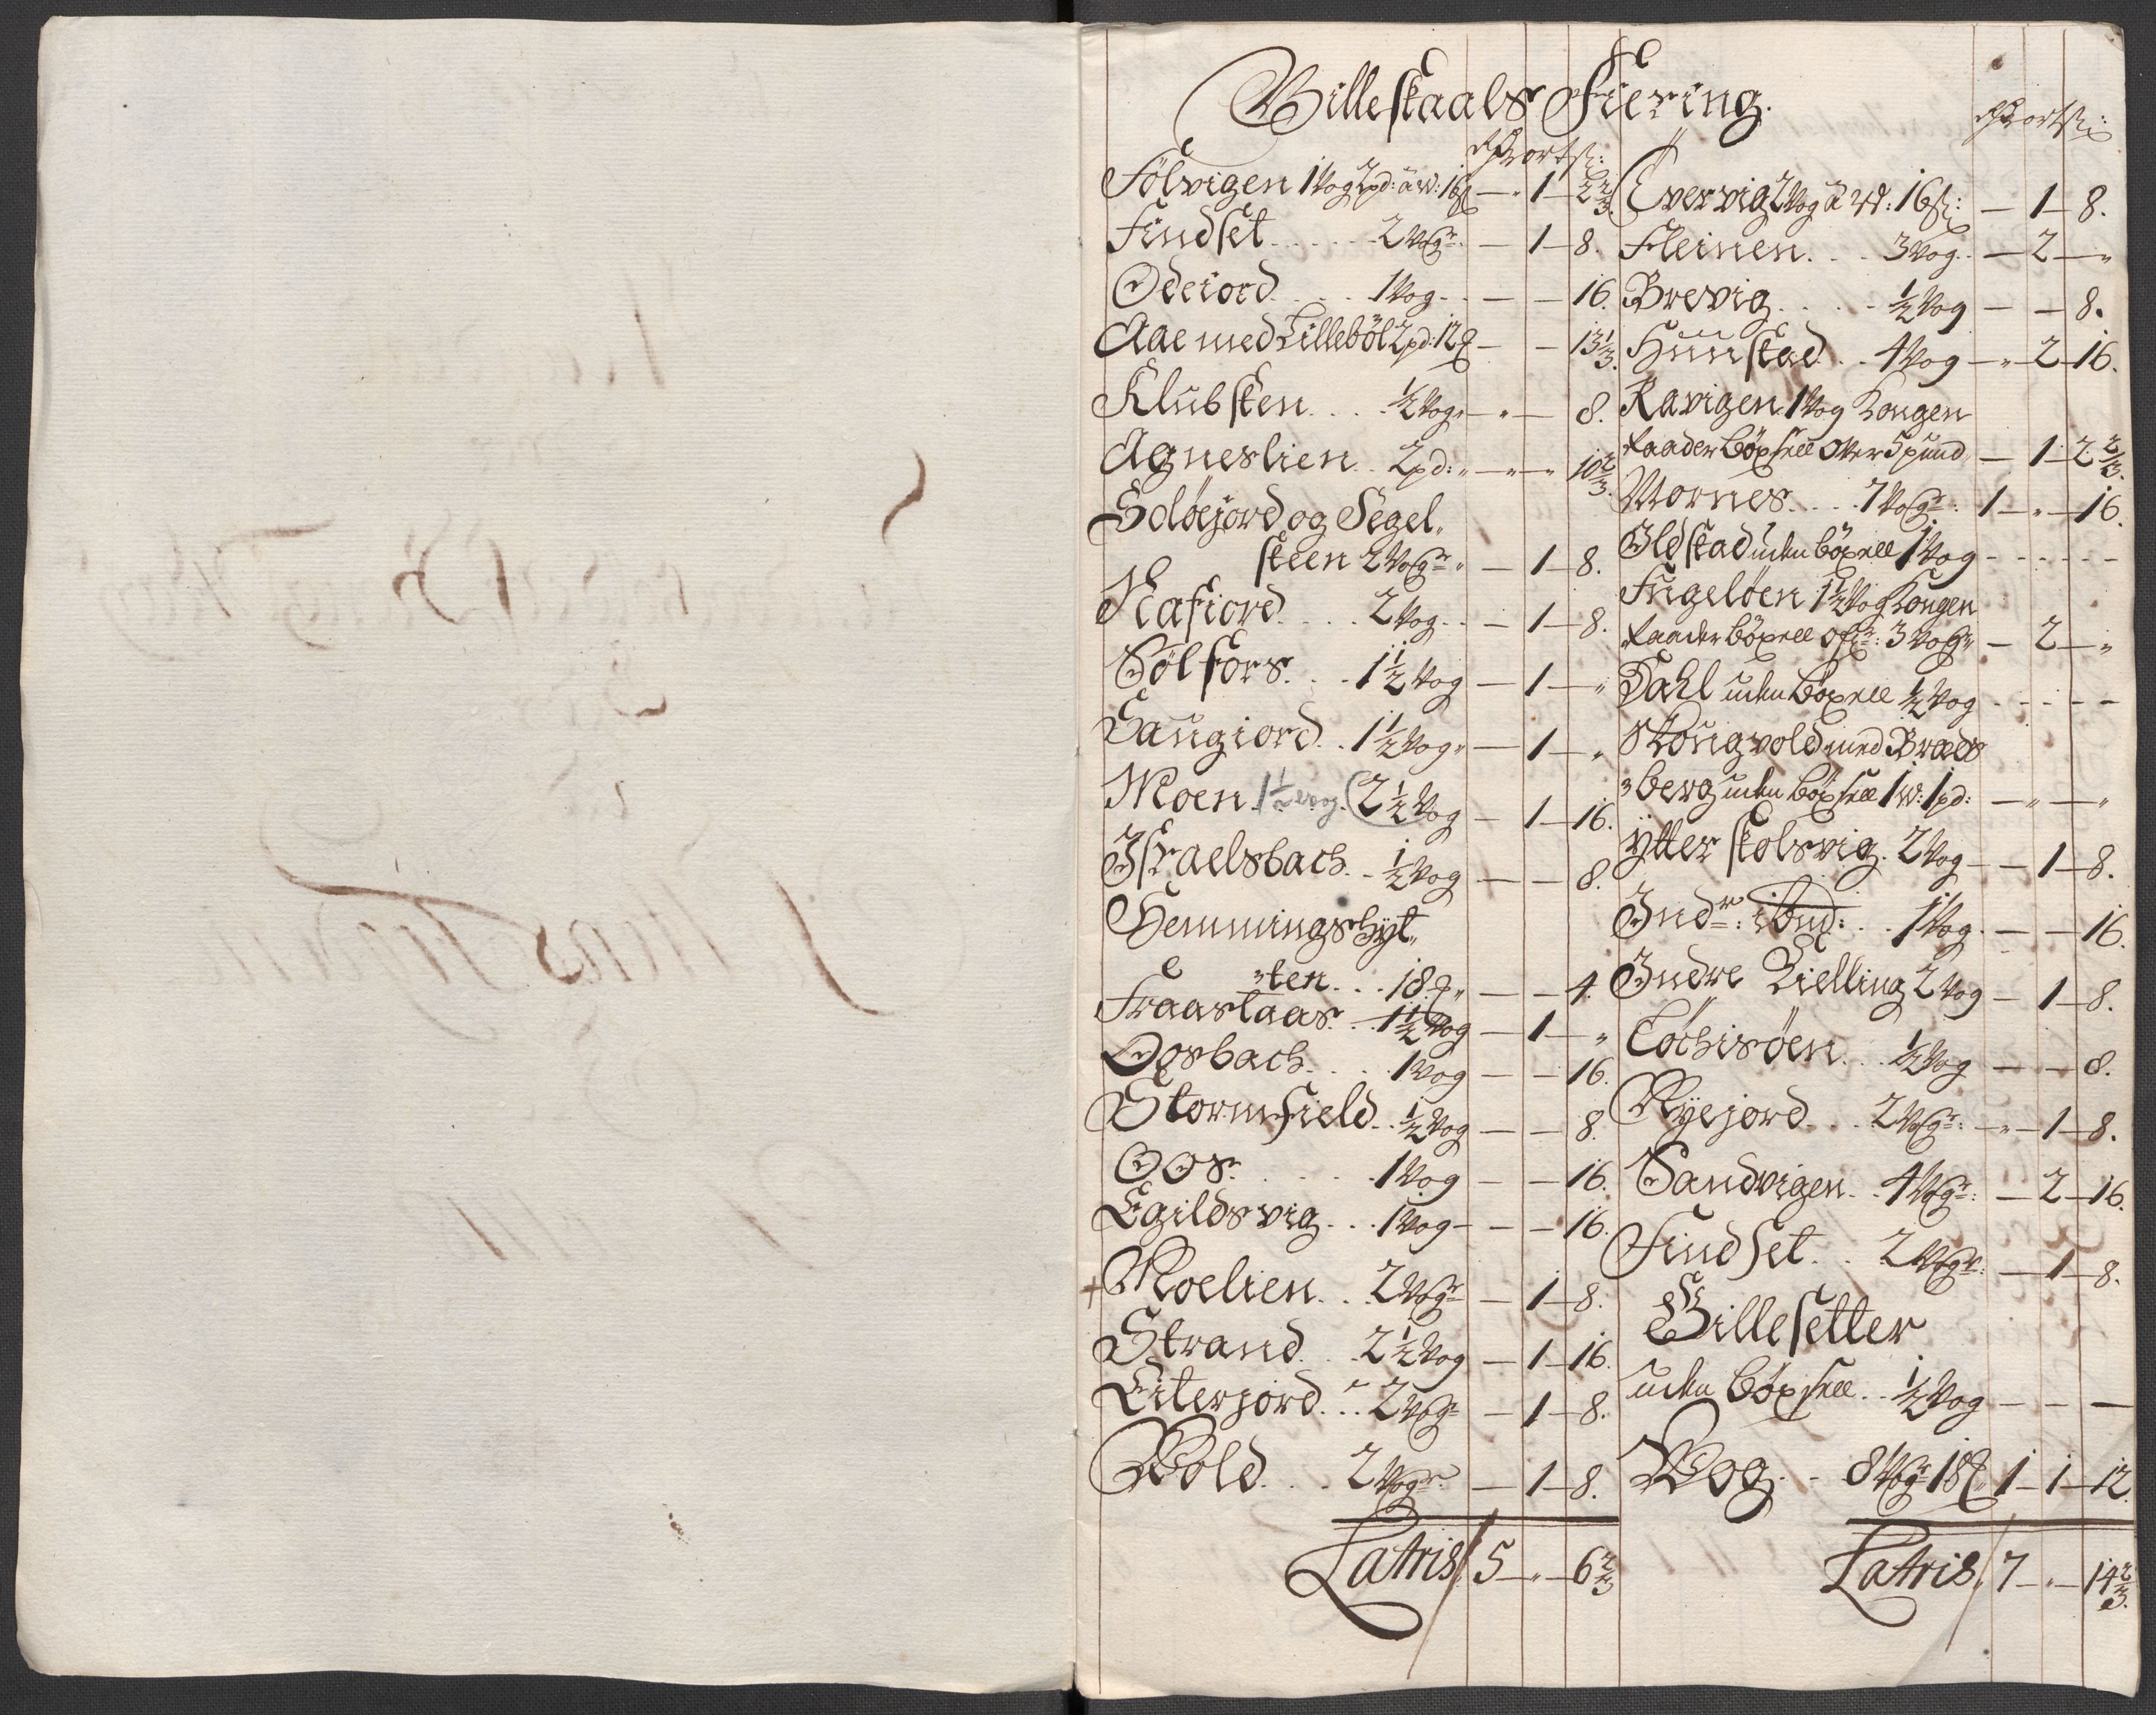 Billeskaals Fiering.
Fölvigen 1 Vog 2 pd: à W: 16 ß — 1 — 2 2/3
Findset 2 Vogr — 1 — 8.
Ödeiord 1 Vog — — 16.
Aae med Lilleböl 2 pd: 12 — — 13 1/3.
Klubsken 1/2 Vog — — 8.
Agneslien 2 pd: — — 10 2/3.
Solöejord og Segel
steen 2 Vogr — 1 — 8.
Nafiord 2 Vog — 1 — 8.
Sölfors 1 1/2 Vog — 1 — "
Saugiord 1 1/2 Vog — 1 — "
Moen 1 1/2 vog. (2 1/2 Vog — 1 — 16.
Israelsbach 1/2 Vog — — 8.
Hemmingshyt
ten 18 — — 4.
Fraastaas 1 1/2 Vog — 1 — "
Oosbach 1 Vog — — 16.
Stormfield 1/2 Vog — — 8.
Oos 1 Vog — — 16.
Egildsvig 1 Vog — — 16.
+ Moelien 2 Vogr — 1 — 8.
Strand 2 1/2 Vog — 1 — 16.
Eiterjord 2 Vogr — 1 — 8.
Wold 2 Vogr — 1 — 8.
Latris 5 — " — 6 2/3
Evervig 2 Vog à W: 16 ß: — 1 — 8.
Fleinen 3 Vog — 2 — "
Brevig 1/2 Vog — — 8.
Hunstad 4 Vog — " 2 — 16.
Ravigen 1 Vog Kongen
raader böxsell over 5 pund — 1 — 2 2/3.
Mornes 7 Vogr 1 — " — 16.
Oldstad uden böxsell 1 Vog
Fugelöen 1 1/2 Vog Kongen
raader böxsell ofr: 3 Vogr — 2 — "
Dahl uden böxsell 1/2 Vog
Skougvold med Brads
berg uden böxsell 1 W: 1 pd: — " — "
ytter skolsvig 2 Vog — 1 — 8.
Indr: ibid: 1 Vog — — 16.
Indre Kielling 2 Vog — 1 — 8.
Löchisöen 1/2 Vog — — 8.
Nyejord 2 Vogr: — 1 — 8.
Sandvigen 4 Vogr: — 2 — 16.
Findset 2 Vogr: — 1 — 8.
Gillesetter
uden böxsell 1/2 Vog — — —
Wog 8 Vogr 18 1 — 1 — 12.
Latris, 7 — " — 14 2/3.